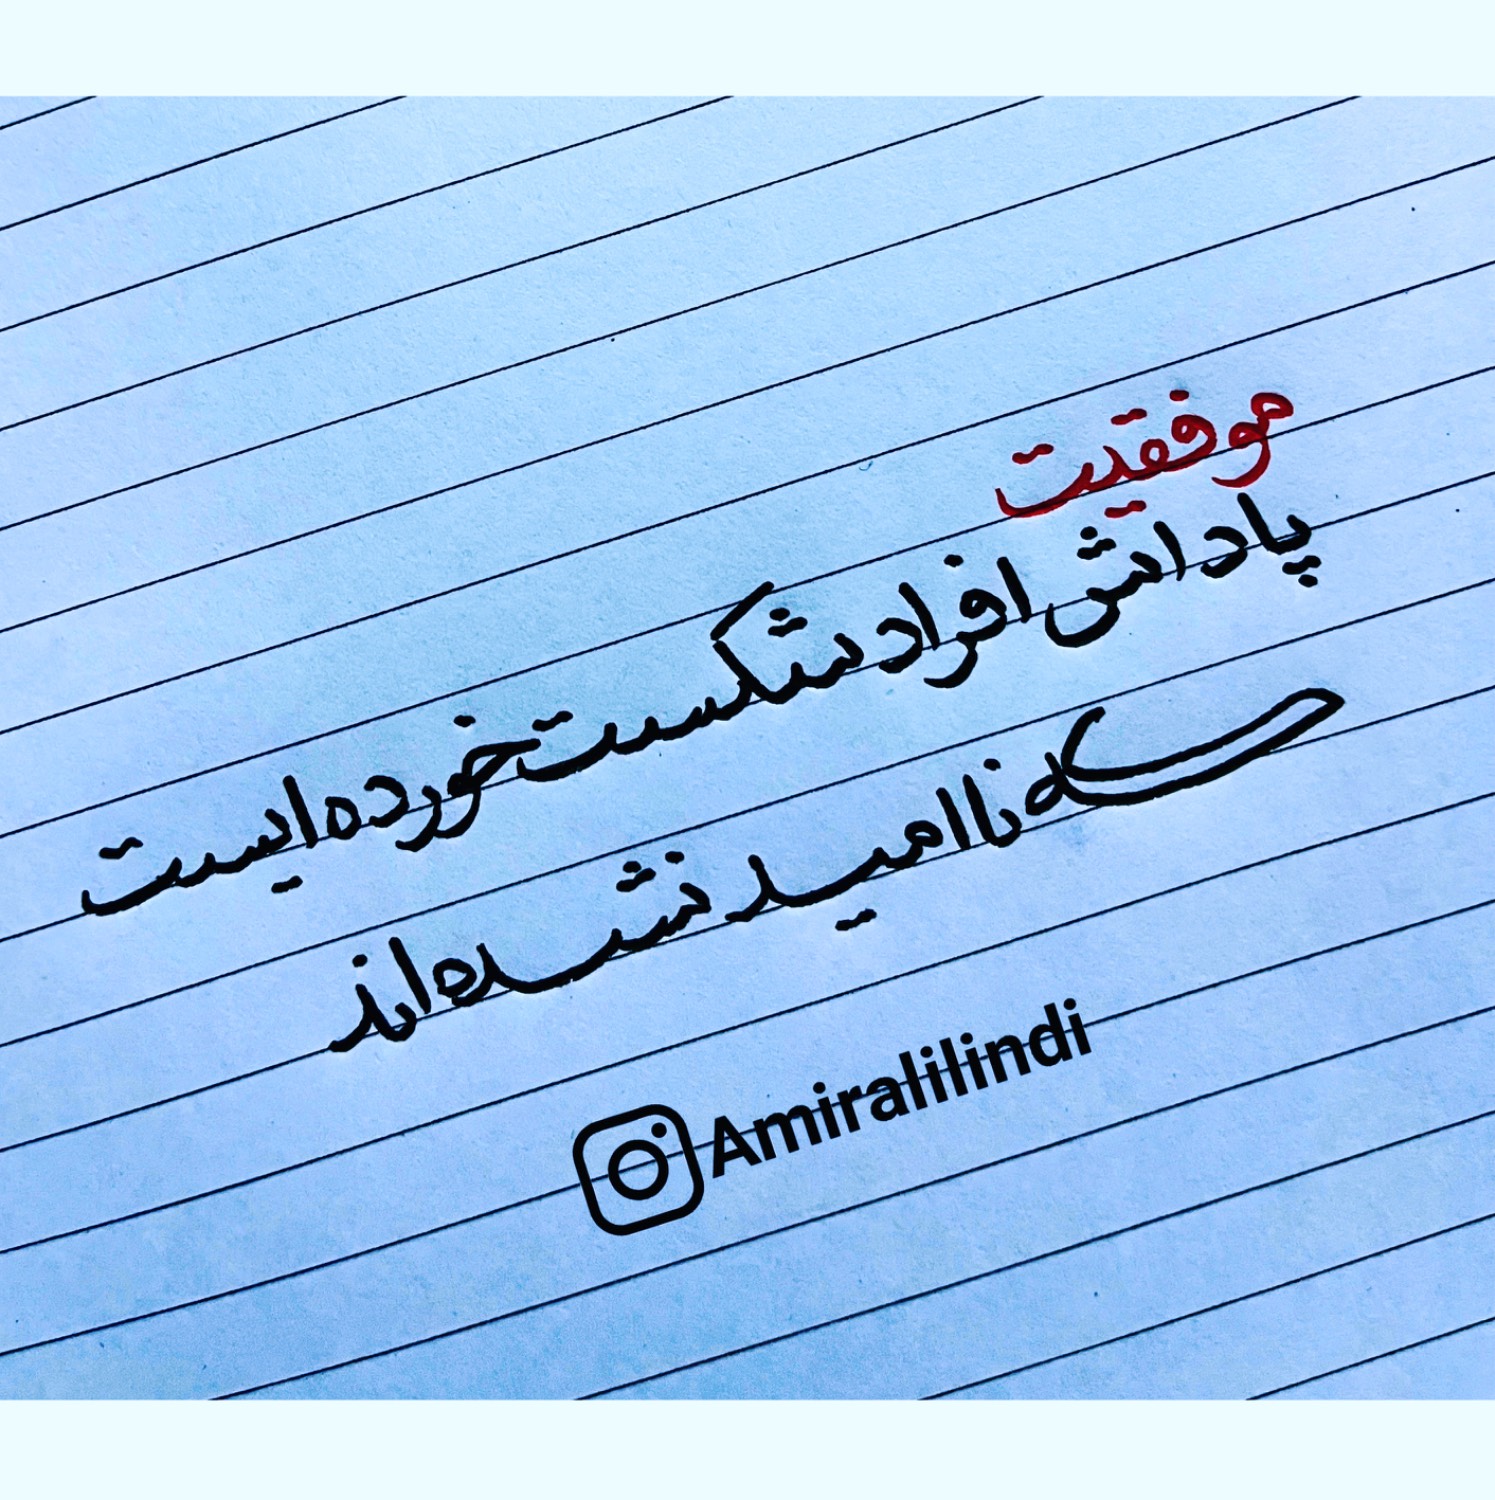 موفقیت
پاداش افراد شکست خورده ایست
که ناامید نشده اند
Amiralilindi